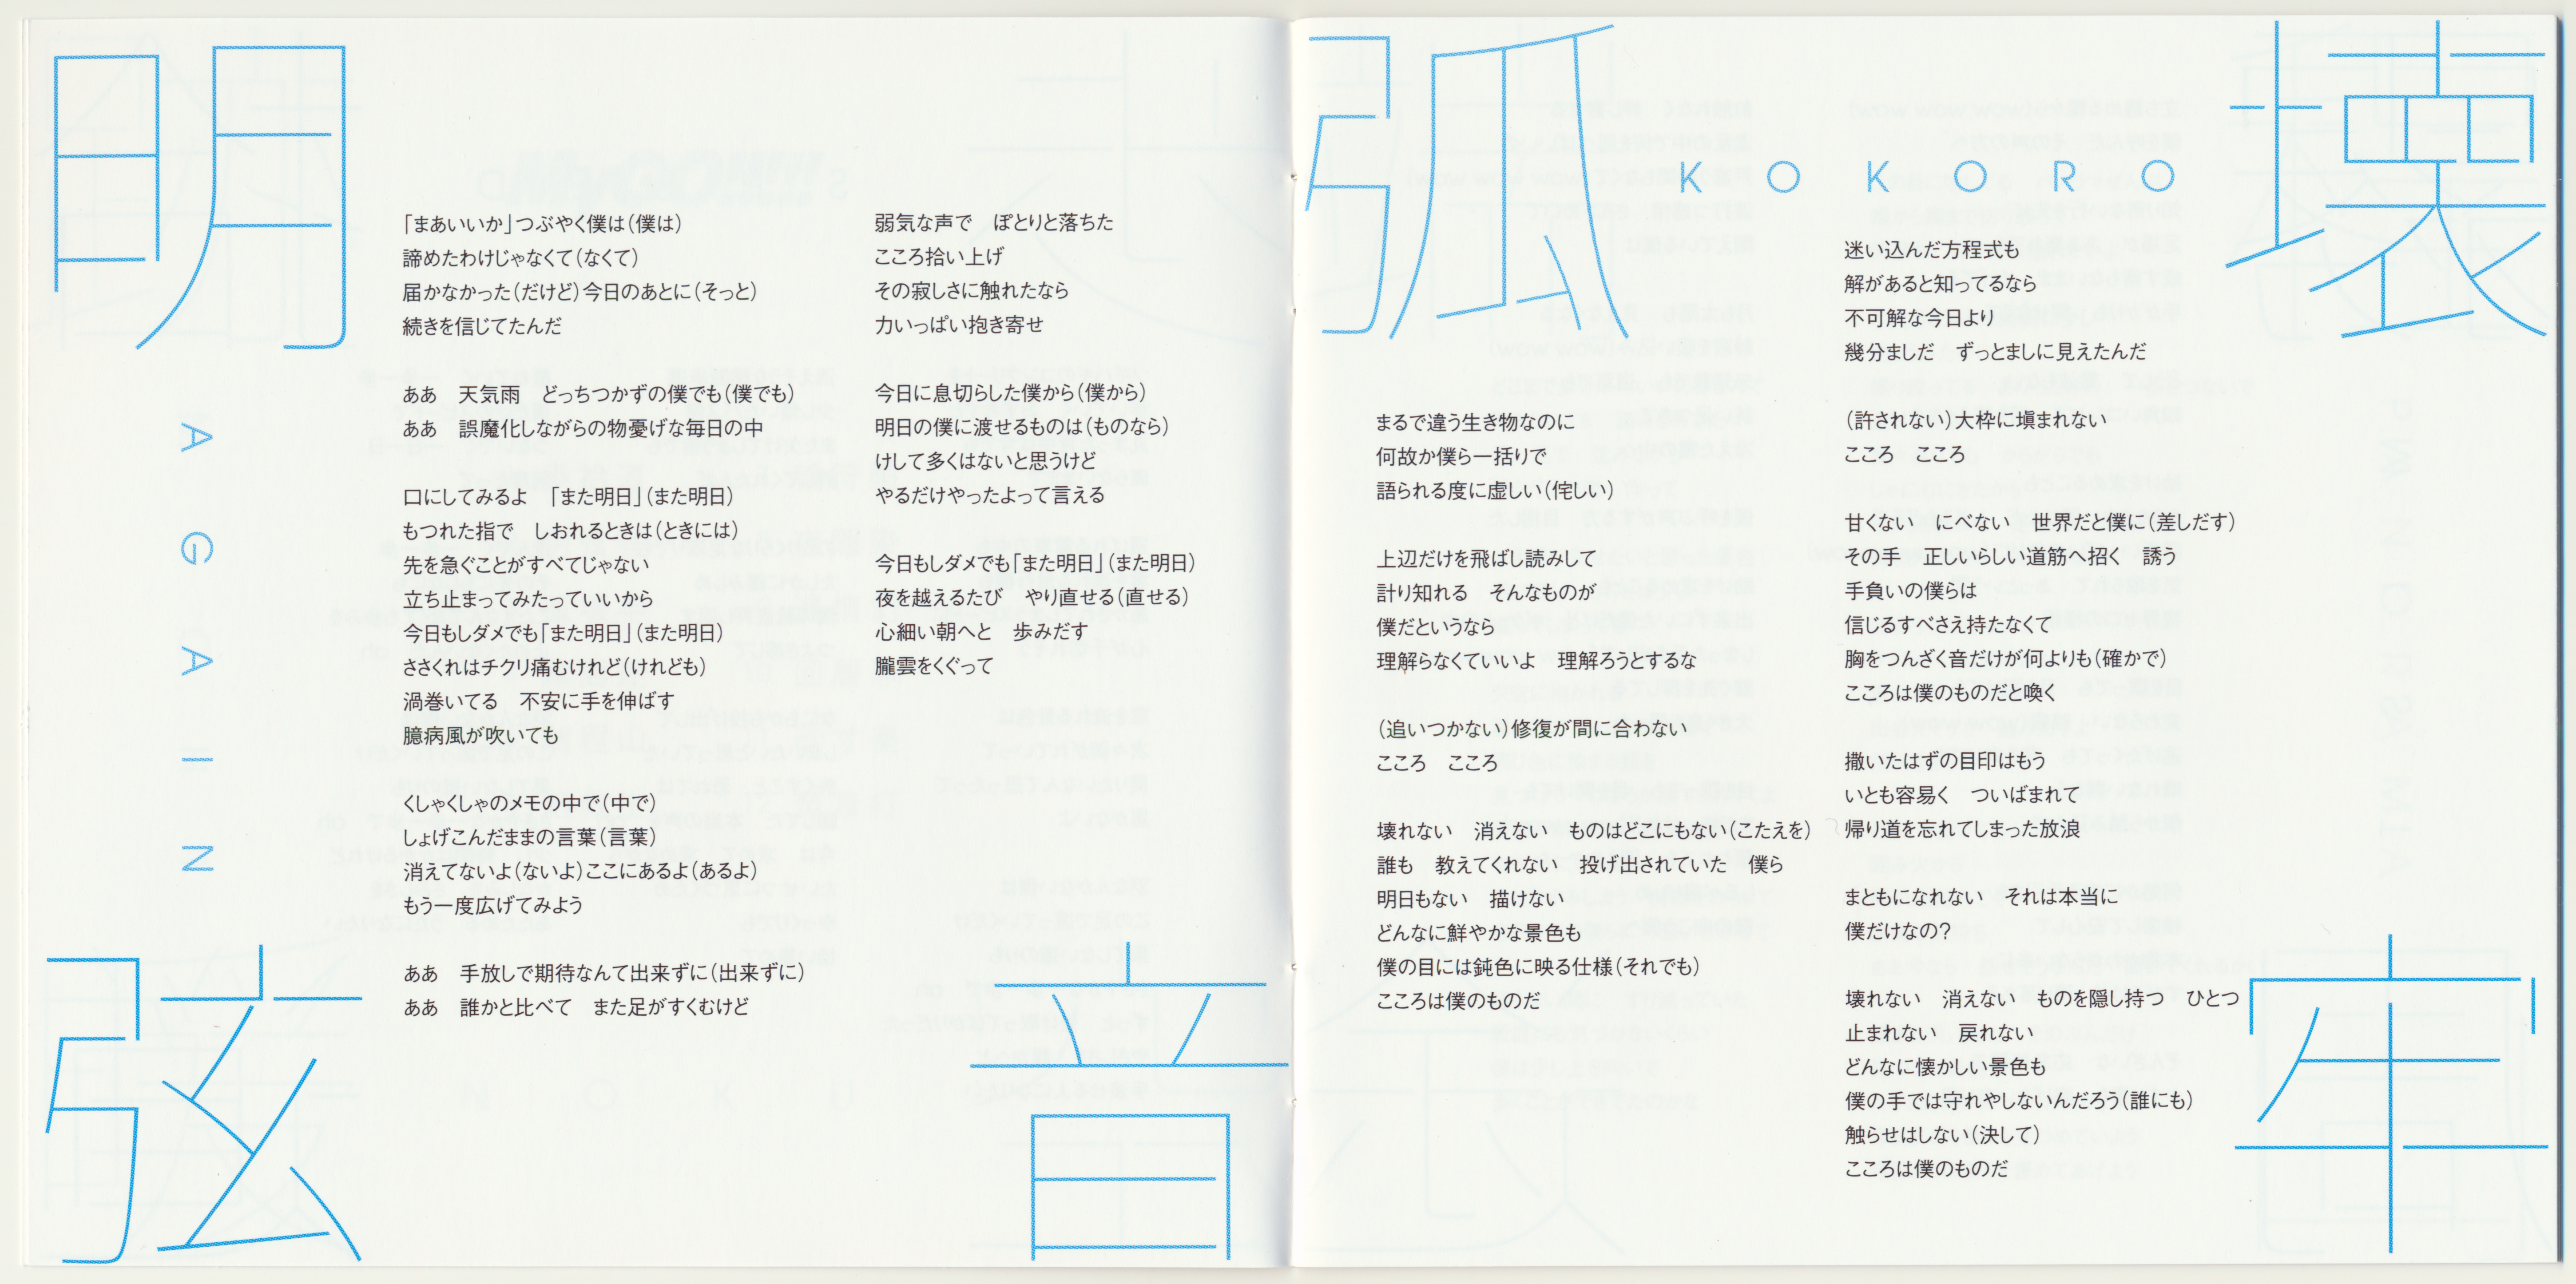 明
AGAIN
「まあいいか」つぶやく僕は（僕は）
諦めたわけじゃなくて（なくて）
届かなかった（だけど）今日のあとに（そっと）
続きを信じてたんだ
ああ　天気雨　どっちつかずの僕でも（僕でも）
ああ　誤魔化しながらの物憂げな毎日の中
口にしてみるよ　「また明日」（また明日）
もつれた指で　しおれるときは（ときには）
先を急ぐことがすべてじゃない
立ち止まってみたっていいから
今日もしダメでも「また明日」（また明日）
ささくれはチクリ痛むけれど（けれども）
渦巻いてる　不安に手を伸ばす
臆病風が吹いても
くしゃくしゃのメモの中で（中で）
しょげこんだままの言葉（言葉）
消えてないよ（ないよ）ここにあるよ（あるよ）
もう一度広げてみよう
ああ　手放しで期待なんて出来ずに（出来ずに）
ああ　誰かと比べて　また足がすくむけど
弱気な声で　ぽとりと落ちた
こころ拾い上げ
その寂しさに触れたなら
力いっぱい抱き寄せ
今日に息切らした僕から（僕から）
明日の僕に渡せるものは（ものなら）
けして多くはないと思うけど
やるだけやったよって言える
今日もしダメでも「また明日」（また明日）
夜を越えるたび　やり直せる（直せる）
心細い朝へと　歩みだす
朧雲をくぐって
弦
音
孤
壊
KOKORO
まるで違う生き物なのに
何故か僕ら一括りで
語られる度に虚しい（侘しい）
上辺だけを飛ばし読みして
計り知れる　そんなものが
僕だというなら
理解らなくていいよ　理解ろうとするな
（追いつかない）修復が間に合わない
こころ　こころ
壊れない　消えない　ものはどこにもない（こたえを）
誰も　教えてくれない　投げ出されていた　僕ら
明日もない　描けない
どんなに鮮やかな景色も
僕の目には鈍色に映る仕様（それでも）
こころは僕のものだ
迷い込んだ方程式も
解があると知ってるなら
不可解な今日より
幾分ましだ　ずっとましに見えたんだ
（許されない）大枠に塡まれない
こころ　こころ
甘くない　にべない　世界だと僕に（差しだす）
その手　正しいらしい道筋へ招く　誘う
手負いの僕らは
信じるすべさえ持たなくて
胸をつんざく音だけが何よりも（確かで）
こころは僕のものだと喚く
撒いたはずの目印はもう
いとも容易く　ついばまれて
帰り道を忘れてしまった放浪
まともになれない　それは本当に
僕だけなの？
壊れない　消えない　ものを隠し持つ　ひとつ
止まれない　戻れない
どんなに懐かしい景色も
僕の手では守れやしないんだろう（誰にも）
触らせはしない（決して）
こころは僕のものだ
牢